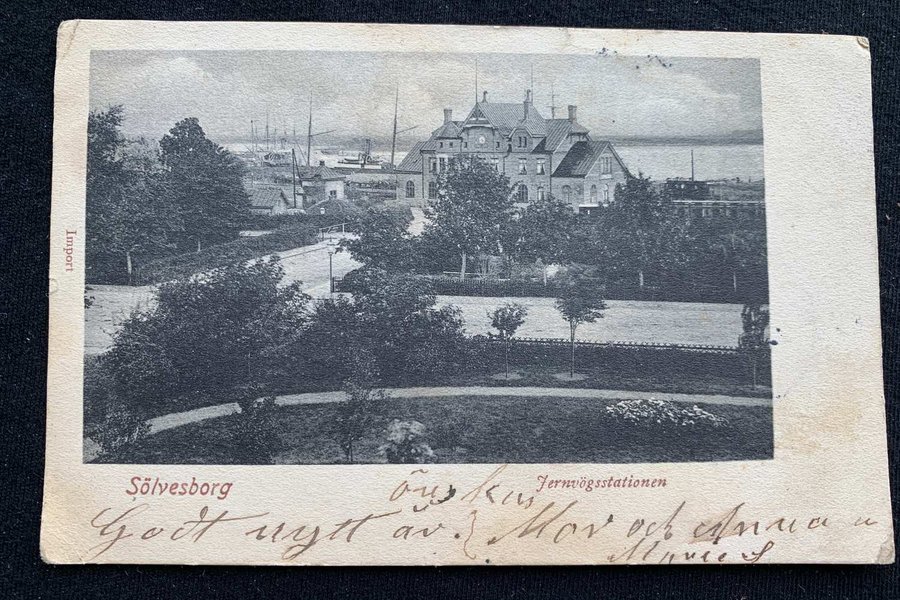 Import
Sölvesborg
Jernvögsstationen
önskas
Godt nytt år. Mor och Anna